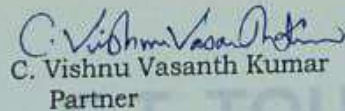 C. Vishnu Vasanth Kumar
C. Vishnu Vasanth Kumar
Partner